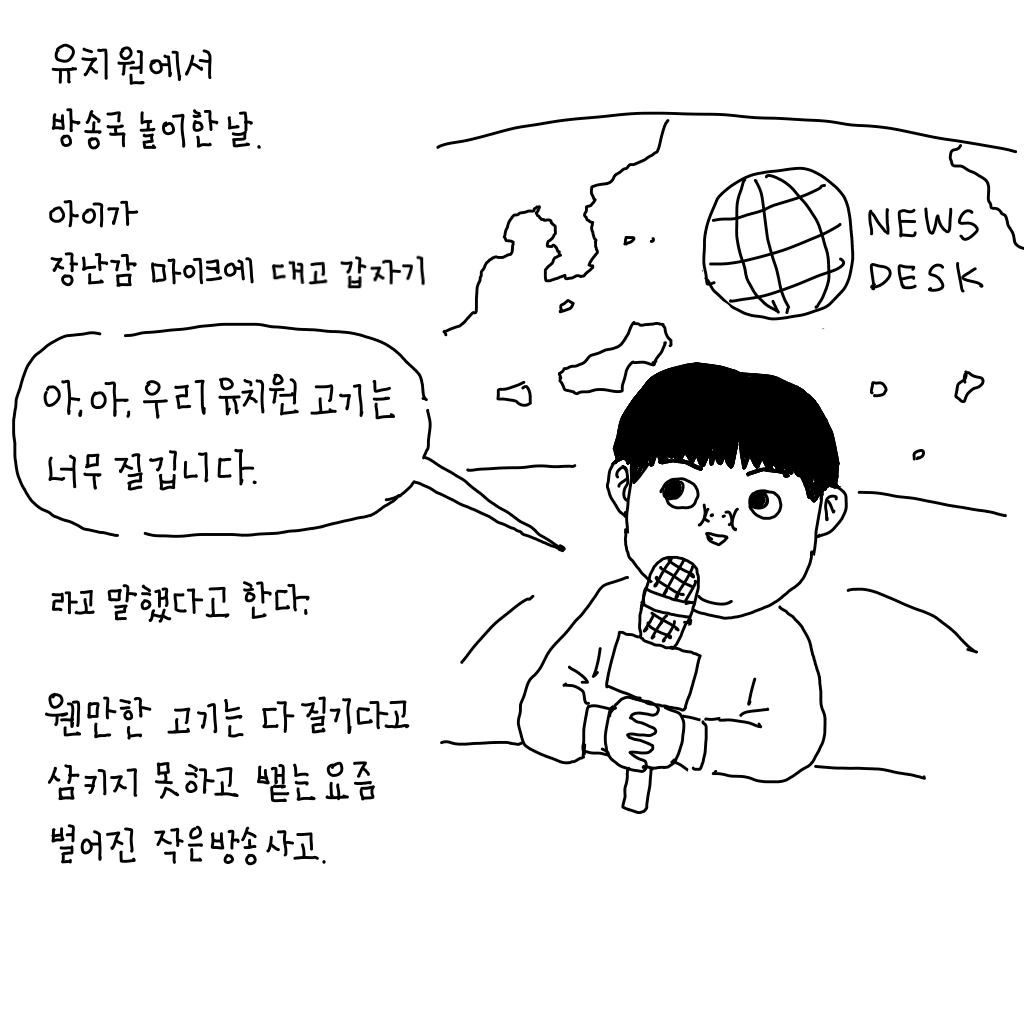 유치원에서
방송국 놀이한 날.
아이가
장난감 마이크에 대고 갑자기
아, 아, 우리 유치원 고기는
너무 질깁니다.
라고 말했다고 한다.
웬만한 고기는 다 질기다고
삼키지 못하고 뱉는 요즘
벌어진 작은 방송사고.
NEWS
DESK